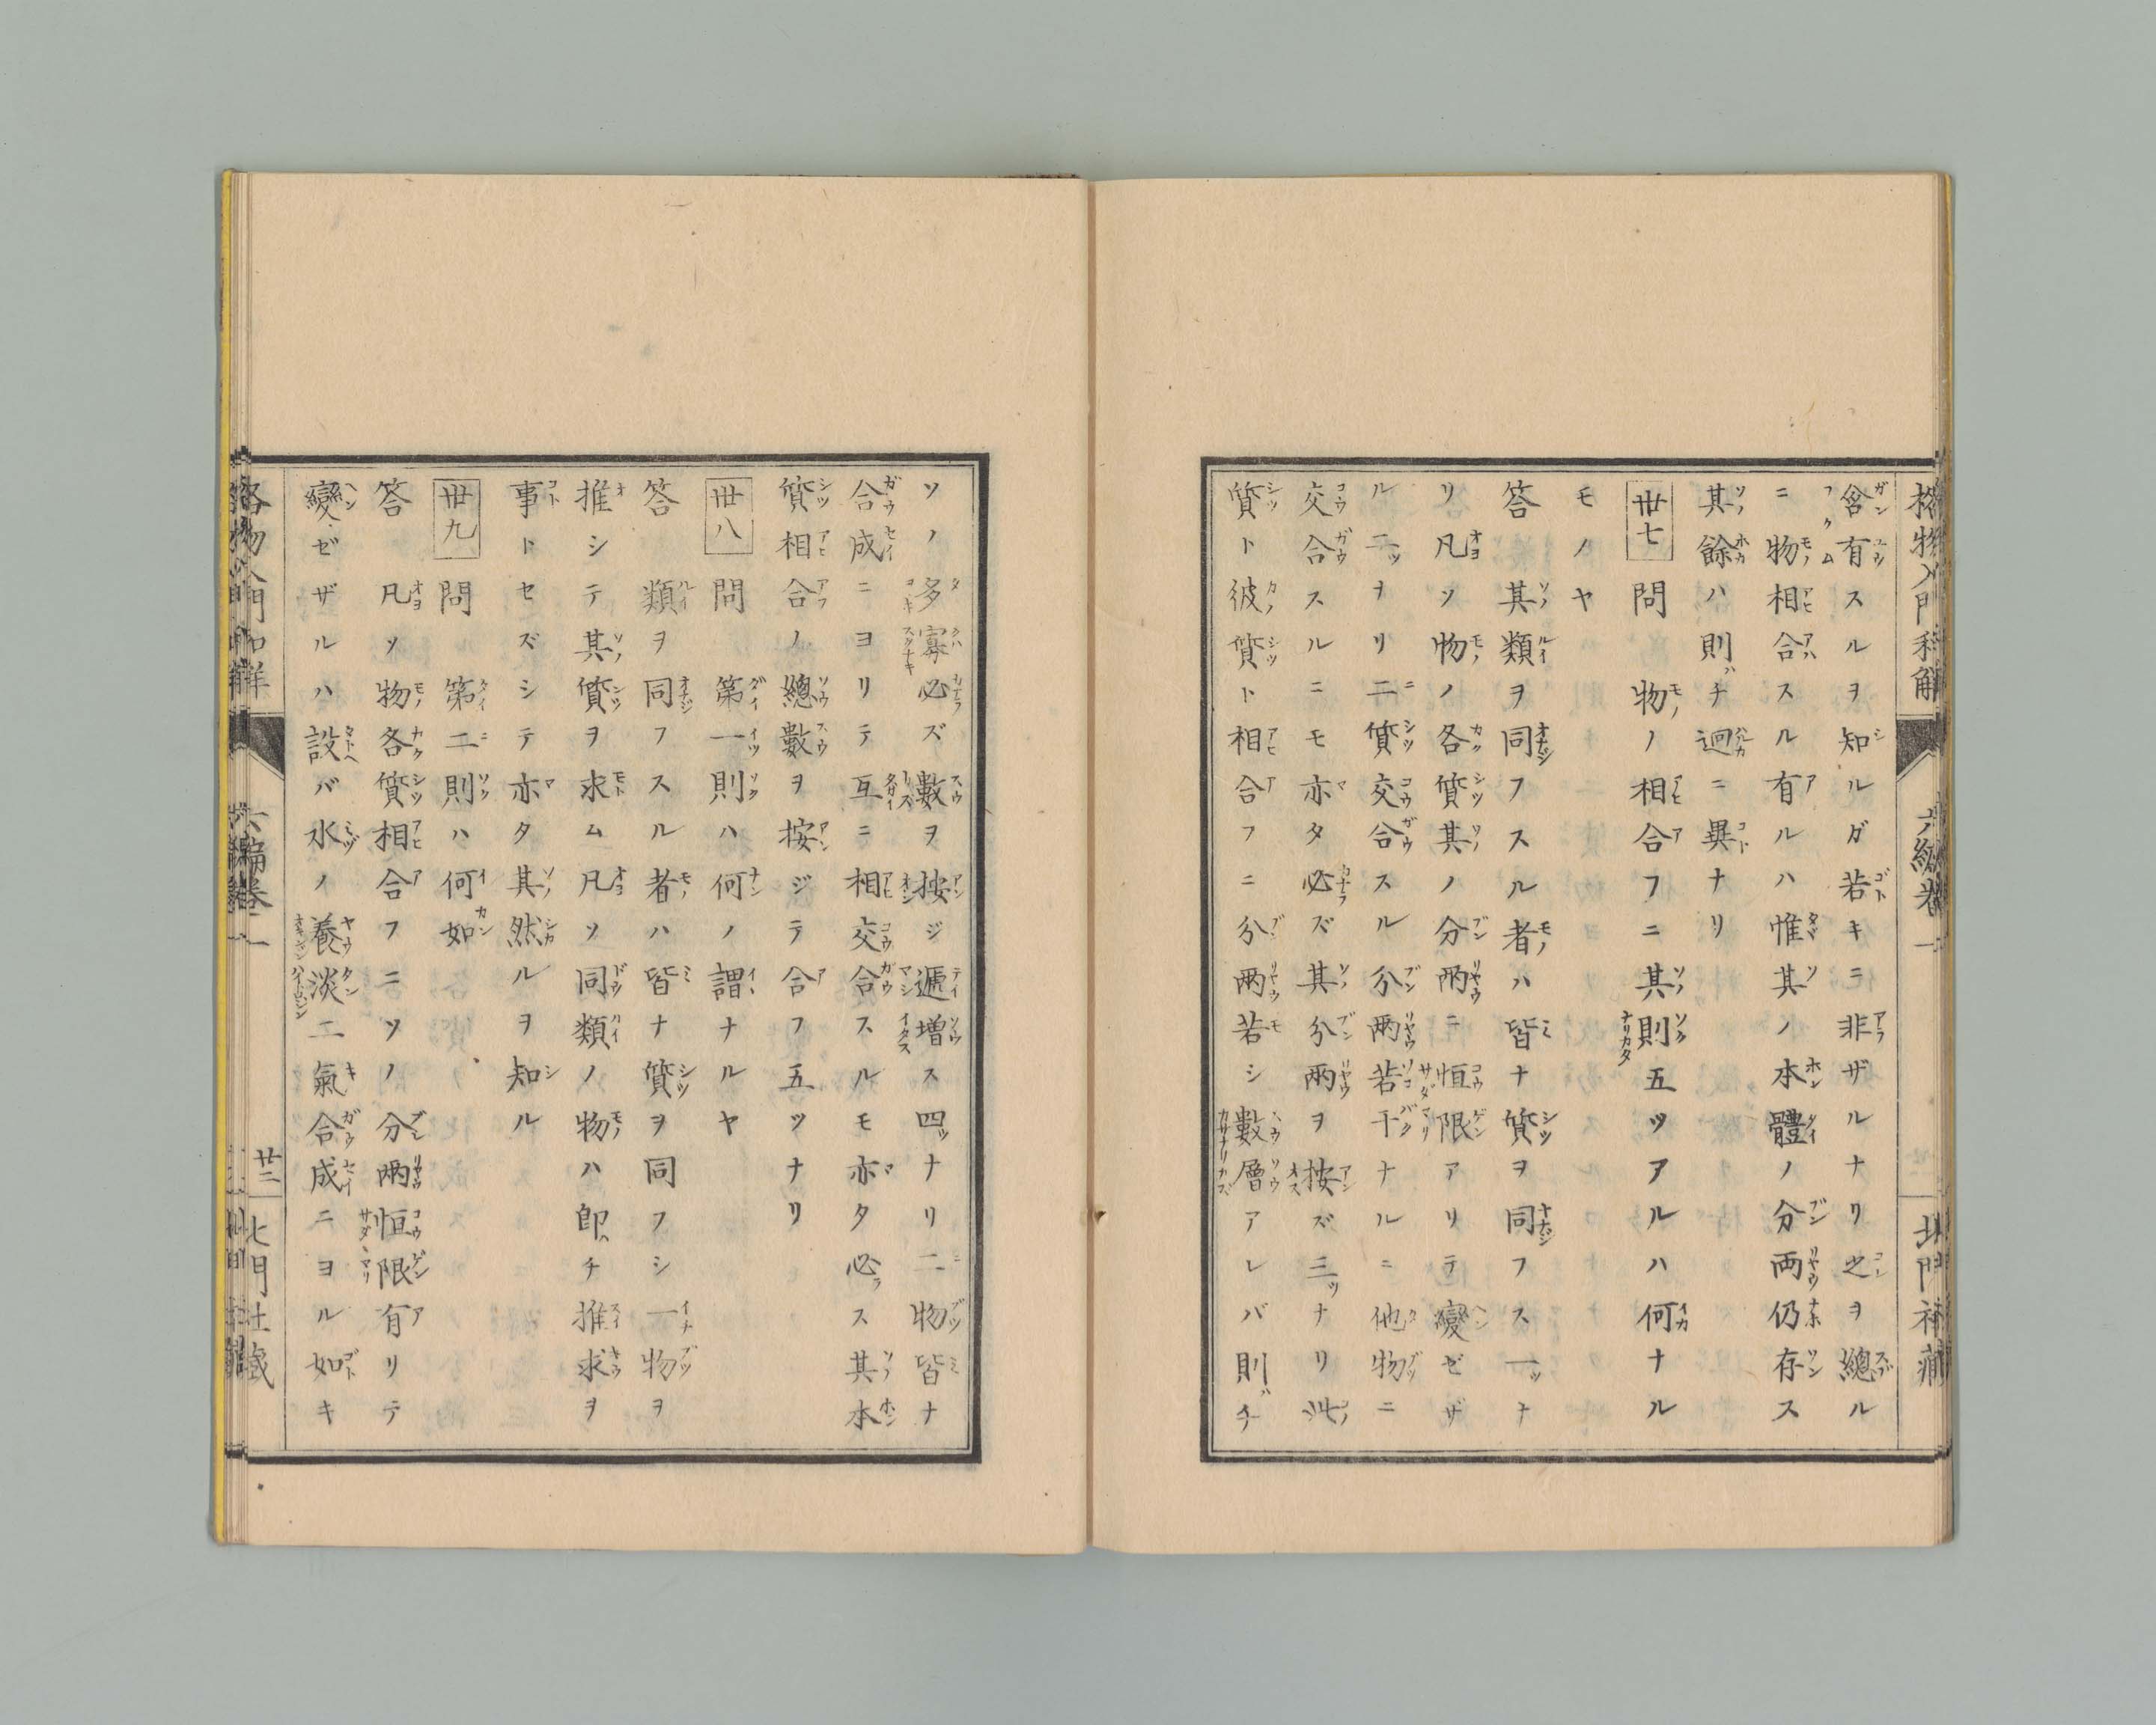 格物入門和解
六編卷一
北門社藏
含有スルヲ知ルガ若キニ非ザルナリ之ヲ總ル
ニ物相合スル有ルハ惟其ノ本體ノ分兩仍存ス
其餘ハ則チ迥ニ異ナリ
卅七 問 物ノ相合フニ其則五ツアルハ何ナル
モノヤ
答 其類ヲ同フスル者ハ皆ナ質ヲ同フス一ッナ
リ凡ソ物ノ各質其ノ分兩ニ恒限アリテ變ゼザ
ル二ッナリ二質交合スル分兩若干ナルニ他物ニ
交合スルニモ亦タ必ズ其分兩ヲ按ズ三ッナリ此
質ト彼質ト相合フニ分兩若シ數層アレバ則チ
ソノ多寡必ズ數ヲ按ジ遞増ス四ッナリ二物皆ナ
合成ニヨリテ互ニ相交合スルモ亦タ必ス其本
質相合ノ總數ヲ按ジテ合フ五ツナリ
卅八 問 第一則ハ何ノ謂ナルヤ
答 類ヲ同フスル者ハ皆ナ質ヲ同フシ一物ヲ
推シテ其質ヲ求ム凡ソ同類ノ物ハ即チ推求ヲ
事トセズシテ亦タ其然ルヲ知ル
卅九 問 第二則ハ何如
答 凡ソ物各質相合フニソノ分兩恒限有リテ
變ゼザルハ設バ水ノ養淡二氣合成ニヨル如キ
格物入門和解
六編卷一
廿二
北門社藏